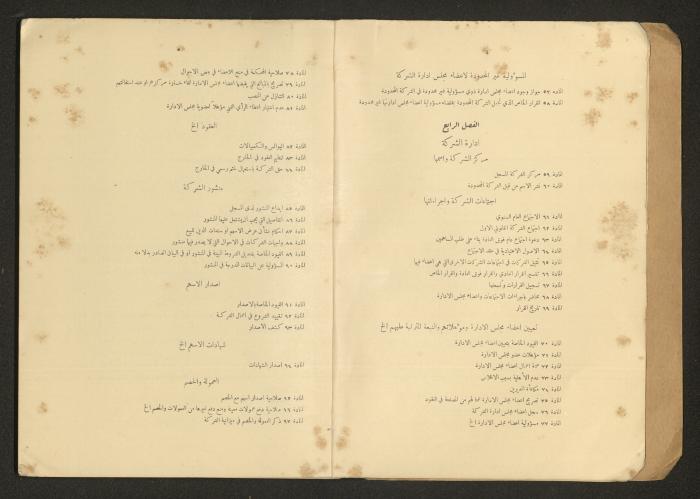 المسؤولية غير المحدودة لاعضاء مجلس ادارة الشركة
المادة ٥٧ جواز وجود اعضاء مجلس ادارة ذوي مسؤولية غير محدودة في الشركة المحدودة
المادة ٥٨ القرار الخاص الذي تخول الشركة المحدودة بمقتضاه مسؤولية اعضاء مجلس ادارتها غير محدودة
الفصل الرابع
ادارة الشركة
مركز الشركة واسمها
المادة ٥٩ مركز الشركة المسجل
المادة ٦٠ نشر الاسم من قبل الشركة المحدودة
اجتماعات الشركة واجراءاتها
المادة ٦١ الاجتماع العام السنوي
المادة ٦٢ اجتماع الشركة القانوني الاول
المادة ٦٣ دعوة اجتماع عام فوق العادة بناء على طلب المساهمين
المادة ٦٤ الاصول الاعتيادية في عقد الاجتماع
المادة ٦٥ تمثيل الشركات في اجتماعات الشركات الاخرى التي هي اعضاء فيها
المادة ٦٦ تفسير القرار العادي والقرار فوق العادة والقرار الخاص
المادة ٦٧ تسجيل القرارات ونسخها
المادة ٦٨ محاضر باجراءات الاجتماعات واعضاء مجلس الادارة
المادة ٦٩ تاريخ القرار
تعيين اعضاء مجلس الادارة ومؤهلاتهم والتبعة المترتبة عليهم الخ
المادة ٧٠ القيود الخاصة بتعيين اعضاء مجلس الادارة
المادة ٧١ مؤهلات عضو مجلس الادارة
المادة ٧٢ صحة اعمال اعضاء مجلس الادارة
المادة ٧٣ عدم الأهلية بسبب الافلاس
المادة ٧٤ مكافأة المديرين
المادة ٧٥ تصريح اعضاء مجلس الادارة عما لهم من المصلحة في العقود
المادة ٧٦ سجل اعضاء مجلس ادارة الشركة
المادة ٧٧ مسؤولية اعضاء مجلس الادارة الخ
المادة ٧٨ صلاحية المحكمة في منح الاعفاء في بعض الاحوال
المادة ٧٩ تصريح بالمبالغ التي يقبضها اعضاء مجلس الادارة لقاء خسارة مركزهم او عند استقالتهم
المادة ٨٠ التنازل عن المنصب
المادة ٨١ عدم اعتبار اعطاء الرأي الفني مؤهلاً لعضوية مجلس الادارة
العقود الخ
المادة ٨٢ البوالص والكمبيالات
المادة ٨٣ تنظيم العقود في الخارج
المادة ٨٤ حق الشركة باستعمال ختم رسمي في الخارج
منشور الشركة
المادة ٨٥ ايداع المنشور لدى المسجل
المادة ٨٦ التفاصيل التي يجب ان يشتمل عليها المنشور
المادة ٨٧ احكام بشأن عرض الاسهم او سندات الدين للبيع
المادة ٨٨ واجبات الشركات في الاحوال التي لا يصدر فيها منشور
المادة ٨٩ القيود الخاصة بتعديل الشروط المبينة في المنشور او في البيان الصادر بدلا منه
المادة ٩٠ المسؤولية عن البيانات المدرجة في المنشور
اصدار الاسهم
المادة ٩١ القيود الخاصة بالاصدار
المادة ٩٢ تقييد الشروع في اعمال الشركة
المادة ٩٣ كشف الاصدار
شهادات الاسهم الخ
المادة ٩٤ اصدار الشهادات
العمولة والخصم
المادة ٩٥ صلاحية اصدار اسهم مع الخصم
المادة ٩٦ صلاحية دفع عمولات معينة ومنع دفع غيرها من العمولات والخصم الخ
المادة ٩٧ ذكر العمولة والخصم في ميزانية الشركة